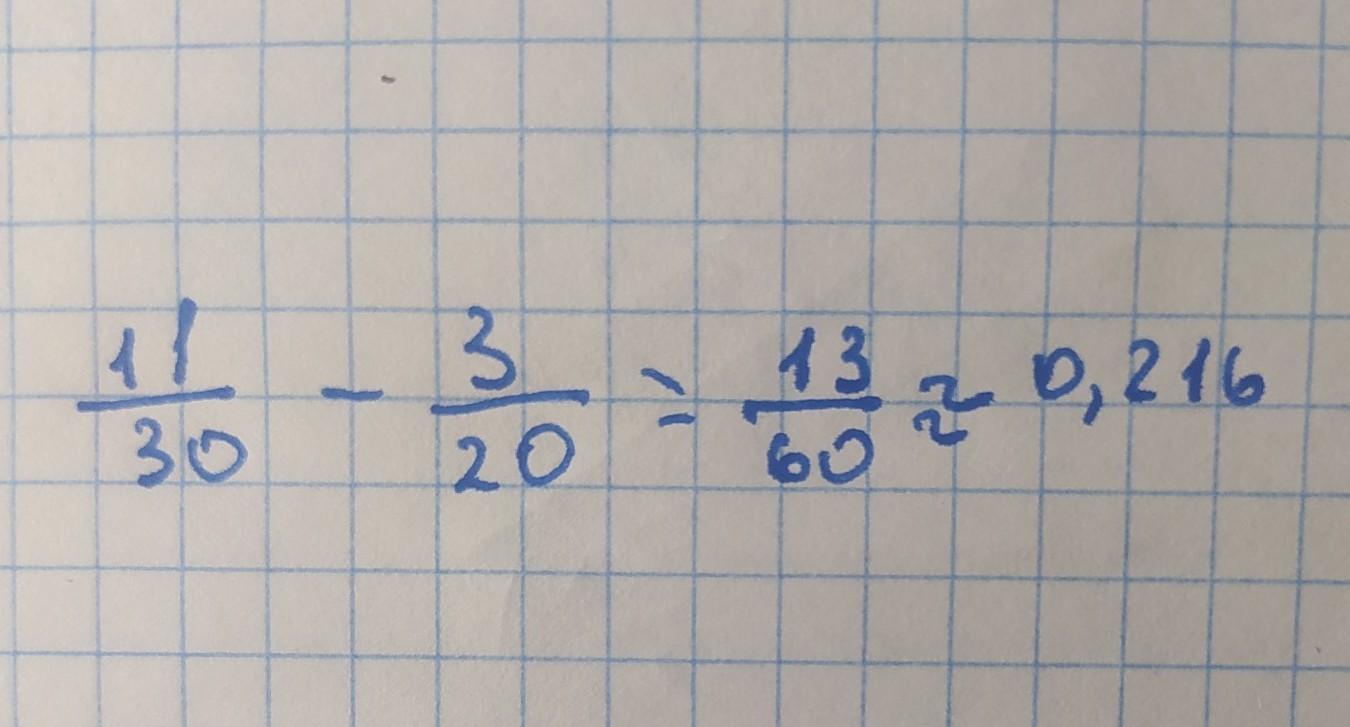 11/30 - 3/20 = 13/60 ≈ 0,216